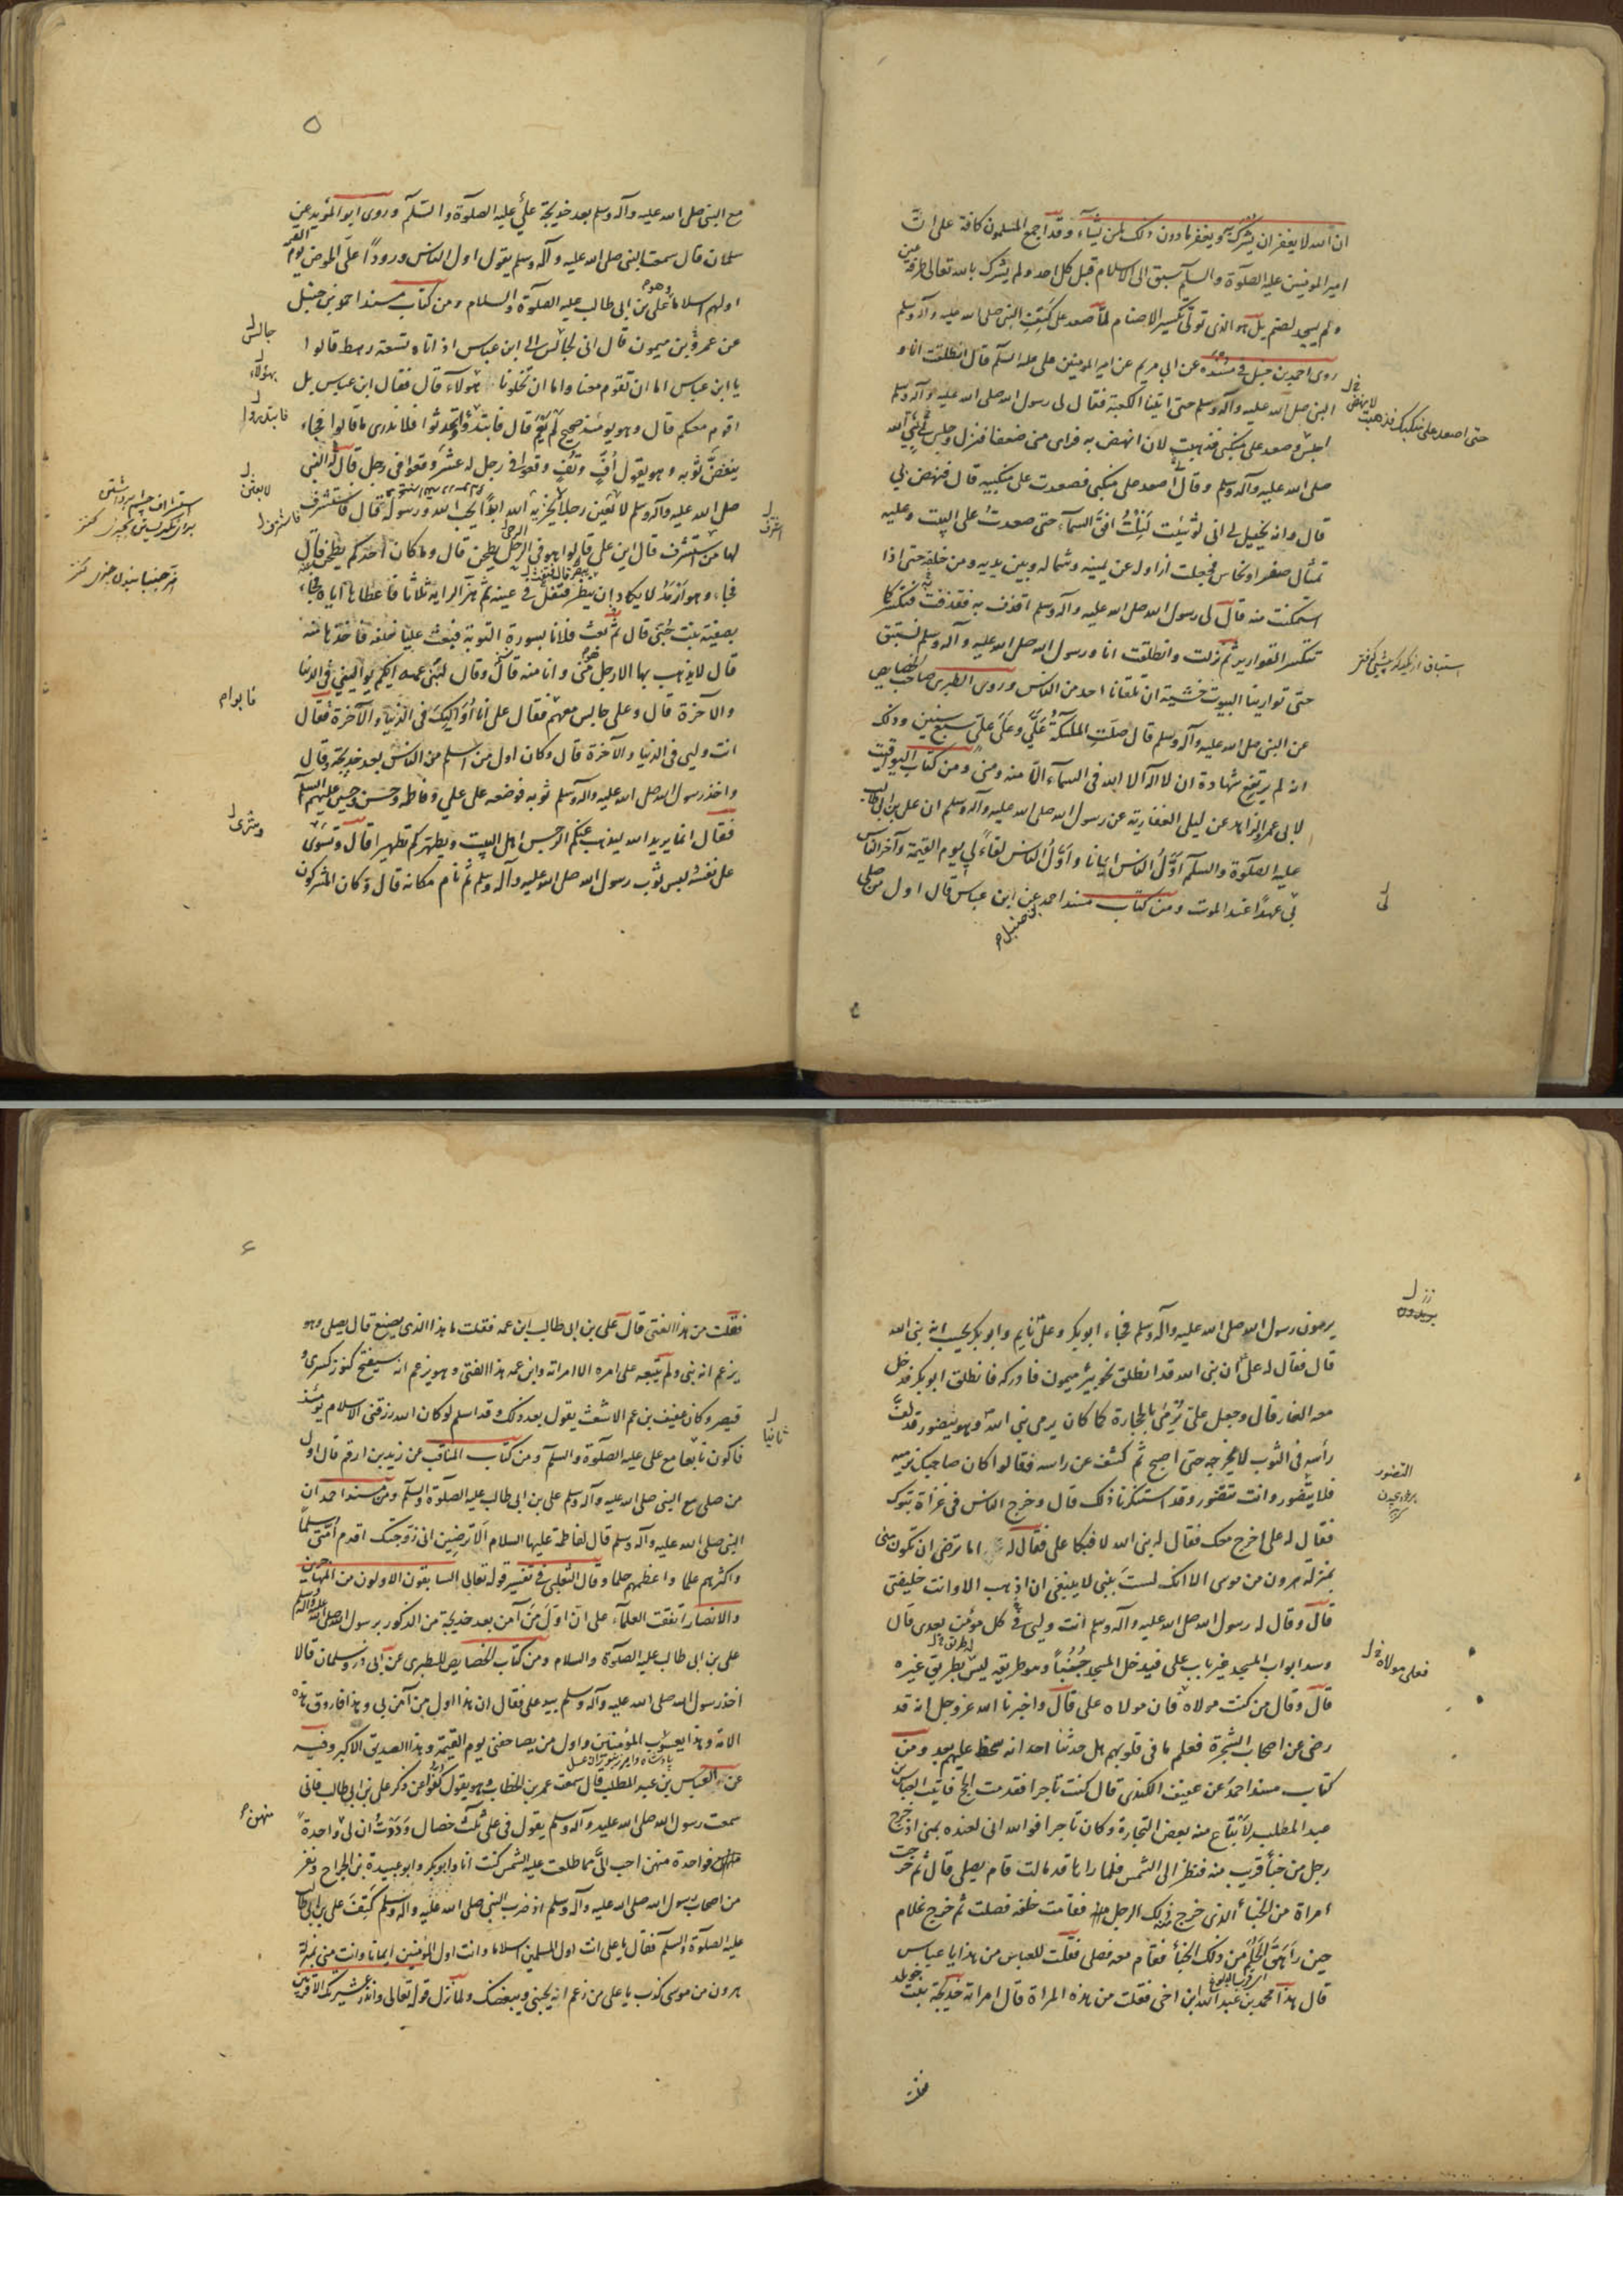 ان الله لا يغفر ان يشرك به ويغفر ما دون ذلك لمن يشآء وقد اجمع المسلمون كافة على انّ
امير المومنين عليه الصلوة والسلم سبق الى الاسلام قبل كل احد ولم يشرك بالله تعالى طرفة عين
ولم يسجد لصنم بل هو الذى تولى تكسير الاصنام لمّا صعد على كتف النبى صلى الله عليه وآله وسلم
روى احمد بن حنبل فى مسنده عن ابي مريم عن امير المومنين على عليه السلم قال انطلقت انا و
النبى صلى الله عليه وآله وسلم حتى اتينا الكعبة فقال لى رسول الله صلى الله عليه وآله وسلم
اجلس وصعد على منكبى فذهبت لان انهض به فراى منى ضعفا فنزل وجلس لى نبي الله
صلى الله عليه وآله وسلم وقال اصعد على منكبى فصعدت على منكبيه قال فنهض بي
قال وانه يخيل لى انى لو شئت لنلت افق السمآء حتى صعدت على البيت وعليه
تمثال صفر او نحاس فجعلت ازاوله عن يمينه وشماله وبين يديه ومن خلفه حتى اذا
استمكنت منه قال لى رسول الله صلى الله عليه وآله وسلم اقذف به فقذفت به فتكسر كما
تنكسر القوارير ثم نزلت وانطلقت انا ورسول الله صلى الله عليه وآله وسلم نستبق
حتى توارينا البيوت خشية ان تلقانا احد من الناس وروى الطبرى صاحب الخصايص
عن النبى صلى الله عليه وآله وسلم قال صلت الملئكة عليّ وعلى علي سبع سنين وذلك
انه لم يرتفع شهادة ان لا اله الا الله فى السمآء الا منه ومنى ومن كتاب اليواقيت
لابى عمر الزاهد عن ليلى الغفارية عن رسول الله صلى الله عليه وآله وسلم ان على بن ابى طالب
عليه الصلوة والسلم اوّل الناس ايمانا واوّل الناس لقآءً لى يوم القيمة وآخر الناس
بى عهدًا عند الموت ومن كتاب مسند احمد عن ابن عباس قال اول من صلى
بن حنبل
حتى اصعد على منكبك فذهبت
لانهض
لى
مع النبى صلى الله عليه وآله وسلم بعد خديجة علي عليه الصلوة والسلم وروى ابو المؤيد عن
سلمان قال سمعت النبى صلى الله عليه وآله وسلم يقول اول الناس ورودًا على الحوض يوم القيمة
اولهم اسلاما وهو على بن ابى طالب عليه الصلوة والسلام ومن كتاب مسند احمد بن حنبل
عن عمرو بن ميمون قال انى لجالس الى ابن عباس اذ اتاه تسعة رهط قالوا
يا ابن عباس اما ان تقوم معنا واما ان تخلونا هؤلاء قال فقال ابن عباس بل
اقوم معكم قال وهو يومئذ صحيح قال فابتدؤا فتحدثوا فلا ندرى ما قالوا فجاء
ينفض ثوبه وهو يقول افّ وتفّ وقعوا فى رجل له عشر وقعوا فى رجل قال له النبى
صلى الله عليه وآله وسلم لابعثن رجلا لا يخزيه الله ابدًا يحب الله ورسوله قال فاستشرف
لها من استشرف قال اين على قالوا هو فى الرحل يطحن قال وما كان احدكم يطحن قال
فجاء وهو ارمد لا يكاد ان ينظر فتفل فى عينه ثم هز الراية ثلاثا فاعطاها اياه فجاء
بصفية بنت حيى قال ثم بعث فلانا بسورة التوبة فبعث عليا خلفه فاخذها منه
قال لا يذهب بها الا رجل منى وانا منه قال وقال لبنى عمه ايكم يوالينى فى الدنيا
والآخرة قال وعلى جالس معهم فقال على انا اواليك فى الدنيا والآخرة فقال
انت وليى فى الدنيا والآخرة قال وكان اول من اسلم من الناس بعد خديجة وقال
واخذ رسول الله صلى الله عليه وآله وسلم ثوبه فوضعه على علي وفاطمة وحسن وحسين عليهم السلم
فقال انما يريد الله ليذهب عنكم الرجس اهل البيت ويطهركم تطهيرا قال وشرى
على نفسه لبس ثوب رسول الله صلى الله عليه وآله وسلم ثم نام مكانه قال وكان المشركون
جالس
بهؤلاء
فابتدروا
لابعثن
فابوام
وشرى
يرمون رسول الله صلى الله عليه وآله وسلم فجاء ابو بكر وعلى نايم وابو بكر يحسب انه نبى الله
قال فقال له على ان نبى الله قد انطلق نحو بئر ميمون فادركه فانطلق ابو بكر فدخل
معه الغار قال وجعل على يرمى بالحجارة كما كان يرمى نبى الله وهو يتضور قد لفّ
رأسه فى الثوب لا يخرجه حتى اصبح ثم كشف عن راسه فقالوا كان صاحبك نرميه
فلا يتضور وانت تتضور وقد استنكرنا ذلك قال وخرج الناس فى غزاة تبوك
فقال له على اخرج معك فقال له نبى الله لا فبكا على فقال له اما ترضى ان تكون منى
بمنزلة هرون من موسى الا انك لست بنبى لا ينبغى ان اذهب الا وانت خليفتى
قال وقال له رسول الله صلى الله عليه وآله وسلم انت وليى فى كل مؤمن بعدى قال
وسد ابواب المسجد غير باب على فيدخل المسجد جنبًا وهو طريقه ليس له طريق غيره
قال وقال من كنت مولاه فان مولاه على قال واخبرنا الله عز وجل انه قد
رضى عن اصحاب الشجرة فعلم ما فى قلوبهم هل حدثنا احد انه سخط عليهم بعد ومن
كتاب مسند احمد عن عفيف الكندى قال كنت تاجرا فقدمت الحج فاتيت العباس بن
عبد المطلب لابتاع منه بعض التجارة وكان تاجرا فوالله انى لعنده بمنى اذ خرج
رجل من خبأ قريب منه فنظر الى الشمس فلما راها قد مالت قام يصلى قال ثم خرجت
امراة من الخبأ الذى خرج منه ذلك الرجل فقامت خلفه فصلت ثم خرج غلام
حين راهق الحلم من ذلك الخبأ فقام معه فصلى فقلت للعباس من هذا يا عباس
قال هذا محمد بن عبد الله ابن اخى فقلت من هذه المراة قال امراته خديجة بنت خويلد
التضور
فعلى مولاه
فقلت
فقلت من هذا الفتى قال على بن ابى طالب ابن عمه فقلت ما هذا الذى يصنع قال يصلى وهو
يزعم انه نبى ولم يتبعه على امره الا امراته وابن عمه هذا الفتى وهو يزعم انه سيفتح كنوز كسرى و
قيصر وكان عفيف بن عم الاشعث يقول بعد ذلك وقد اسلم لو كان الله رزقنى الاسلام يومئذ
فاكون تابعا مع على عليه الصلوة والسلم ومن كتاب المناقب عن زيد بن ارقم قال اول
من صلى مع النبى صلى الله عليه وآله وسلم على بن ابى طالب عليه الصلوة والسلم ومن مسند احمد ان
النبى صلى الله عليه وآله وسلم قال لفاطمة عليها السلام الا ترضين انى زوجتك اقدم امتى سلما
واكثرهم علما واعظمهم حلما وقال الثعلبى فى تفسير قوله تعالى السابقون الاولون من المهاجرين
والانصار اتفقت العلمآء على ان اول من آمن بعد خديجة من الذكور برسول الله صلى الله عليه وآله وسلم
على بن ابى طالب عليه الصلوة والسلام ومن كتاب الخصايص للطبرى عن ابى ذر وسلمان قالا
اخذ رسول الله صلى الله عليه وآله وسلم بيد على فقال ان هذا اول من آمن بى وهذا فاروق هذه
الامة وهذا يعسوب المؤمنين واول من يصافحنى يوم القيمة وهذا الصديق الاكبر وفيه
عن العباس بن عبد المطلب قال سمعت عمر بن الخطاب وهو يقول كفوا عن ذكر على بن ابى طالب فانى
سمعت رسول الله صلى الله عليه وآله وسلم يقول فى على ثلث خصال وددت ان لى واحدة
فواحدة منهن احب اليّ مما طلعت عليه الشمس كنت انا وابو بكر وابو عبيدة بن الجراح ونفر
من اصحاب رسول الله صلى الله عليه وآله وسلم اذ ضرب النبى صلى الله عليه وآله وسلم كتف على بن ابى طالب
عليه الصلوة والسلم فقال يا على انت اول المسلمين اسلاما وانت اول المؤمنين ايمانا وانت منى بمنزلة
هرون من موسى كذب يا على من زعم انه يحبنى ويبغضك ولما نزل قوله تعالى وانذر عشيرتك الاقربين
ثانيا
منهن